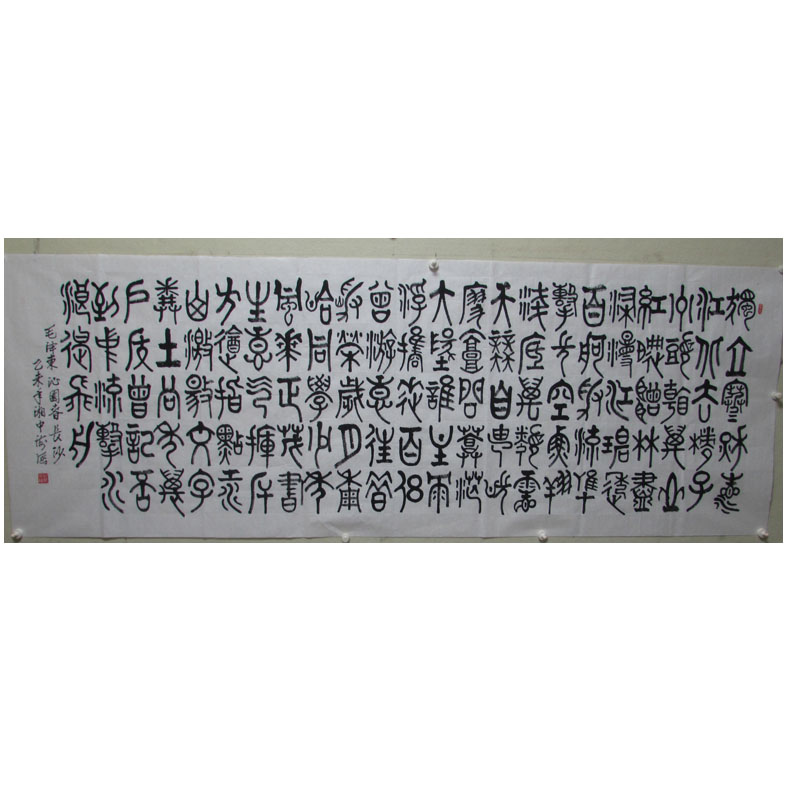 獨立寒秋湘
江北去橘子
洲頭看萬山
紅遍層林盡
染漫江碧透
百舸爭流鷹
擊長空魚翔
淺底萬類霜
天競自由悵
寥廓問蒼茫
大地誰主沉
浮攜來百侶
曾遊憶往昔
崢嶸歲月稠
恰同學少年
風華正茂書
生意氣揮斥
方遒指點江
山激揚文字
糞土當年萬
戶侯曾記否
到中流擊水
浪遏飛舟
毛泽東沁園春長沙
乙未年湘中